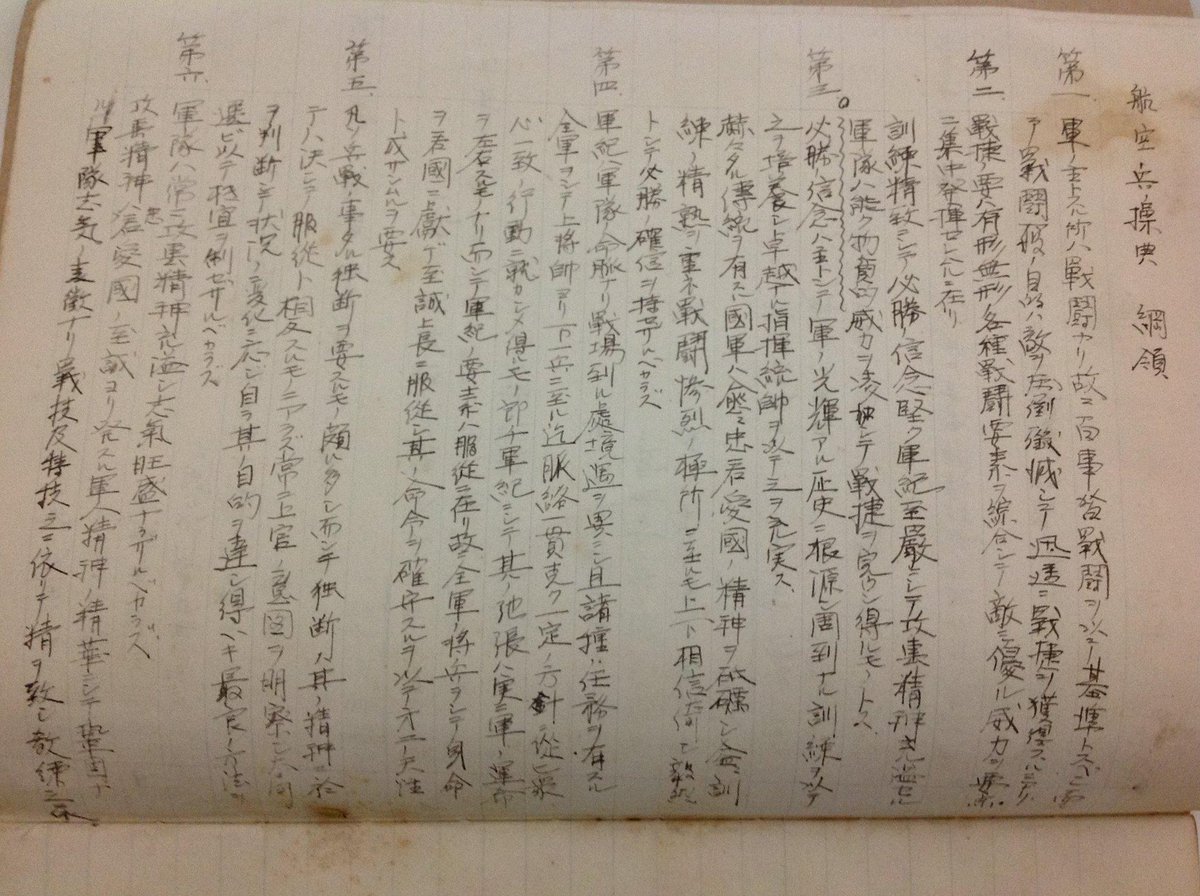 航空兵操典 綱領
第一 軍ノ主トスル所ハ戦闘ナリ故ニ百事皆戦闘ヲ以テ基準トスベシ而
テ戦闘一般ノ目的ハ敵ヲ圧倒殲滅シテ迅速ニ戦捷ヲ獲得スルニアリ
第二 戦捷ノ要ハ有形無形ノ各種戦闘要素ヲ綜合シテ敵ニ優ル威力ヲ要点
ニ集中発揮セシムルニ在リ
訓練精致ニシテ必勝ノ信念堅ク軍紀至厳ニシテ攻撃精神充溢セル
軍隊ハ能ク物質的威力ヲ凌駕シテ戦捷ヲ完ウシ得ルモノトス
第三 必勝ノ信念ハ主トシテ軍ノ光輝アル歴史ニ根源シ周到ナル訓練ヲ以テ
之ヲ培養シ卓越ナル指揮統帥ヲ以テ之ヲ充実ス
赫々タル傳統ヲ有スル國軍ハ愈々忠君愛國ノ精神ヲ砥礪シ益々訓
練ノ精熟ヲ重ネ戦闘惨烈ノ極所ニ至ルモ上下相信倚シ毅然
トシテ必勝ノ確信ヲ持セザルベカラズ
第四 軍紀ハ軍隊ノ命脈ナリ戦場到ル處境遇ヲ異ニシ且諸種ノ任務ヲ有スル
全軍ヲシテ上将帥ヨリ下一兵ニ至ル迄脈絡一貫克ク一定ノ方針ニ從ヒ衆
心一致ノ行動ニ就カシメ得ルモノ即チ軍紀ニシテ其ノ弛張ハ実ニ軍ノ運命
ヲ左右スルモノナリ而シテ軍紀ノ要素ハ服從ニ在リ故ニ全軍ノ将兵ヲシテ身命
ヲ君國ニ獻ゲ至誠上長ニ服從シ其ノ命令ヲ確守スルヲ以テ第二ノ天性
ト成サシムルヲ要ス
第五 凡ソ兵戦ノ事タル独断ヲ要スルモノ頗ル多シ而シテ独断ハ其ノ精神ニ於
テハ決シテ服從ト相反スルモノニアラズ常ニ上官ノ意図ヲ明察シ大局
ヲ判断シテ状況ノ変化ニ応ジ自ラ其ノ目的ヲ達シ得ベキ最良ノ方法ヲ
選ビ以テ機宜ヲ制セザルベカラズ
第六 軍隊ハ常ニ攻撃精神充溢シ士氣旺盛ナラザルベカラズ
攻撃精神ハ忠君愛國ノ至誠ヨリ発スル軍人精神ノ精華ニシテ鞏固ナ
ル軍隊士気ノ表徴ナリ戦技及特技之ニ依リテ精ヲ致シ教練之ニ